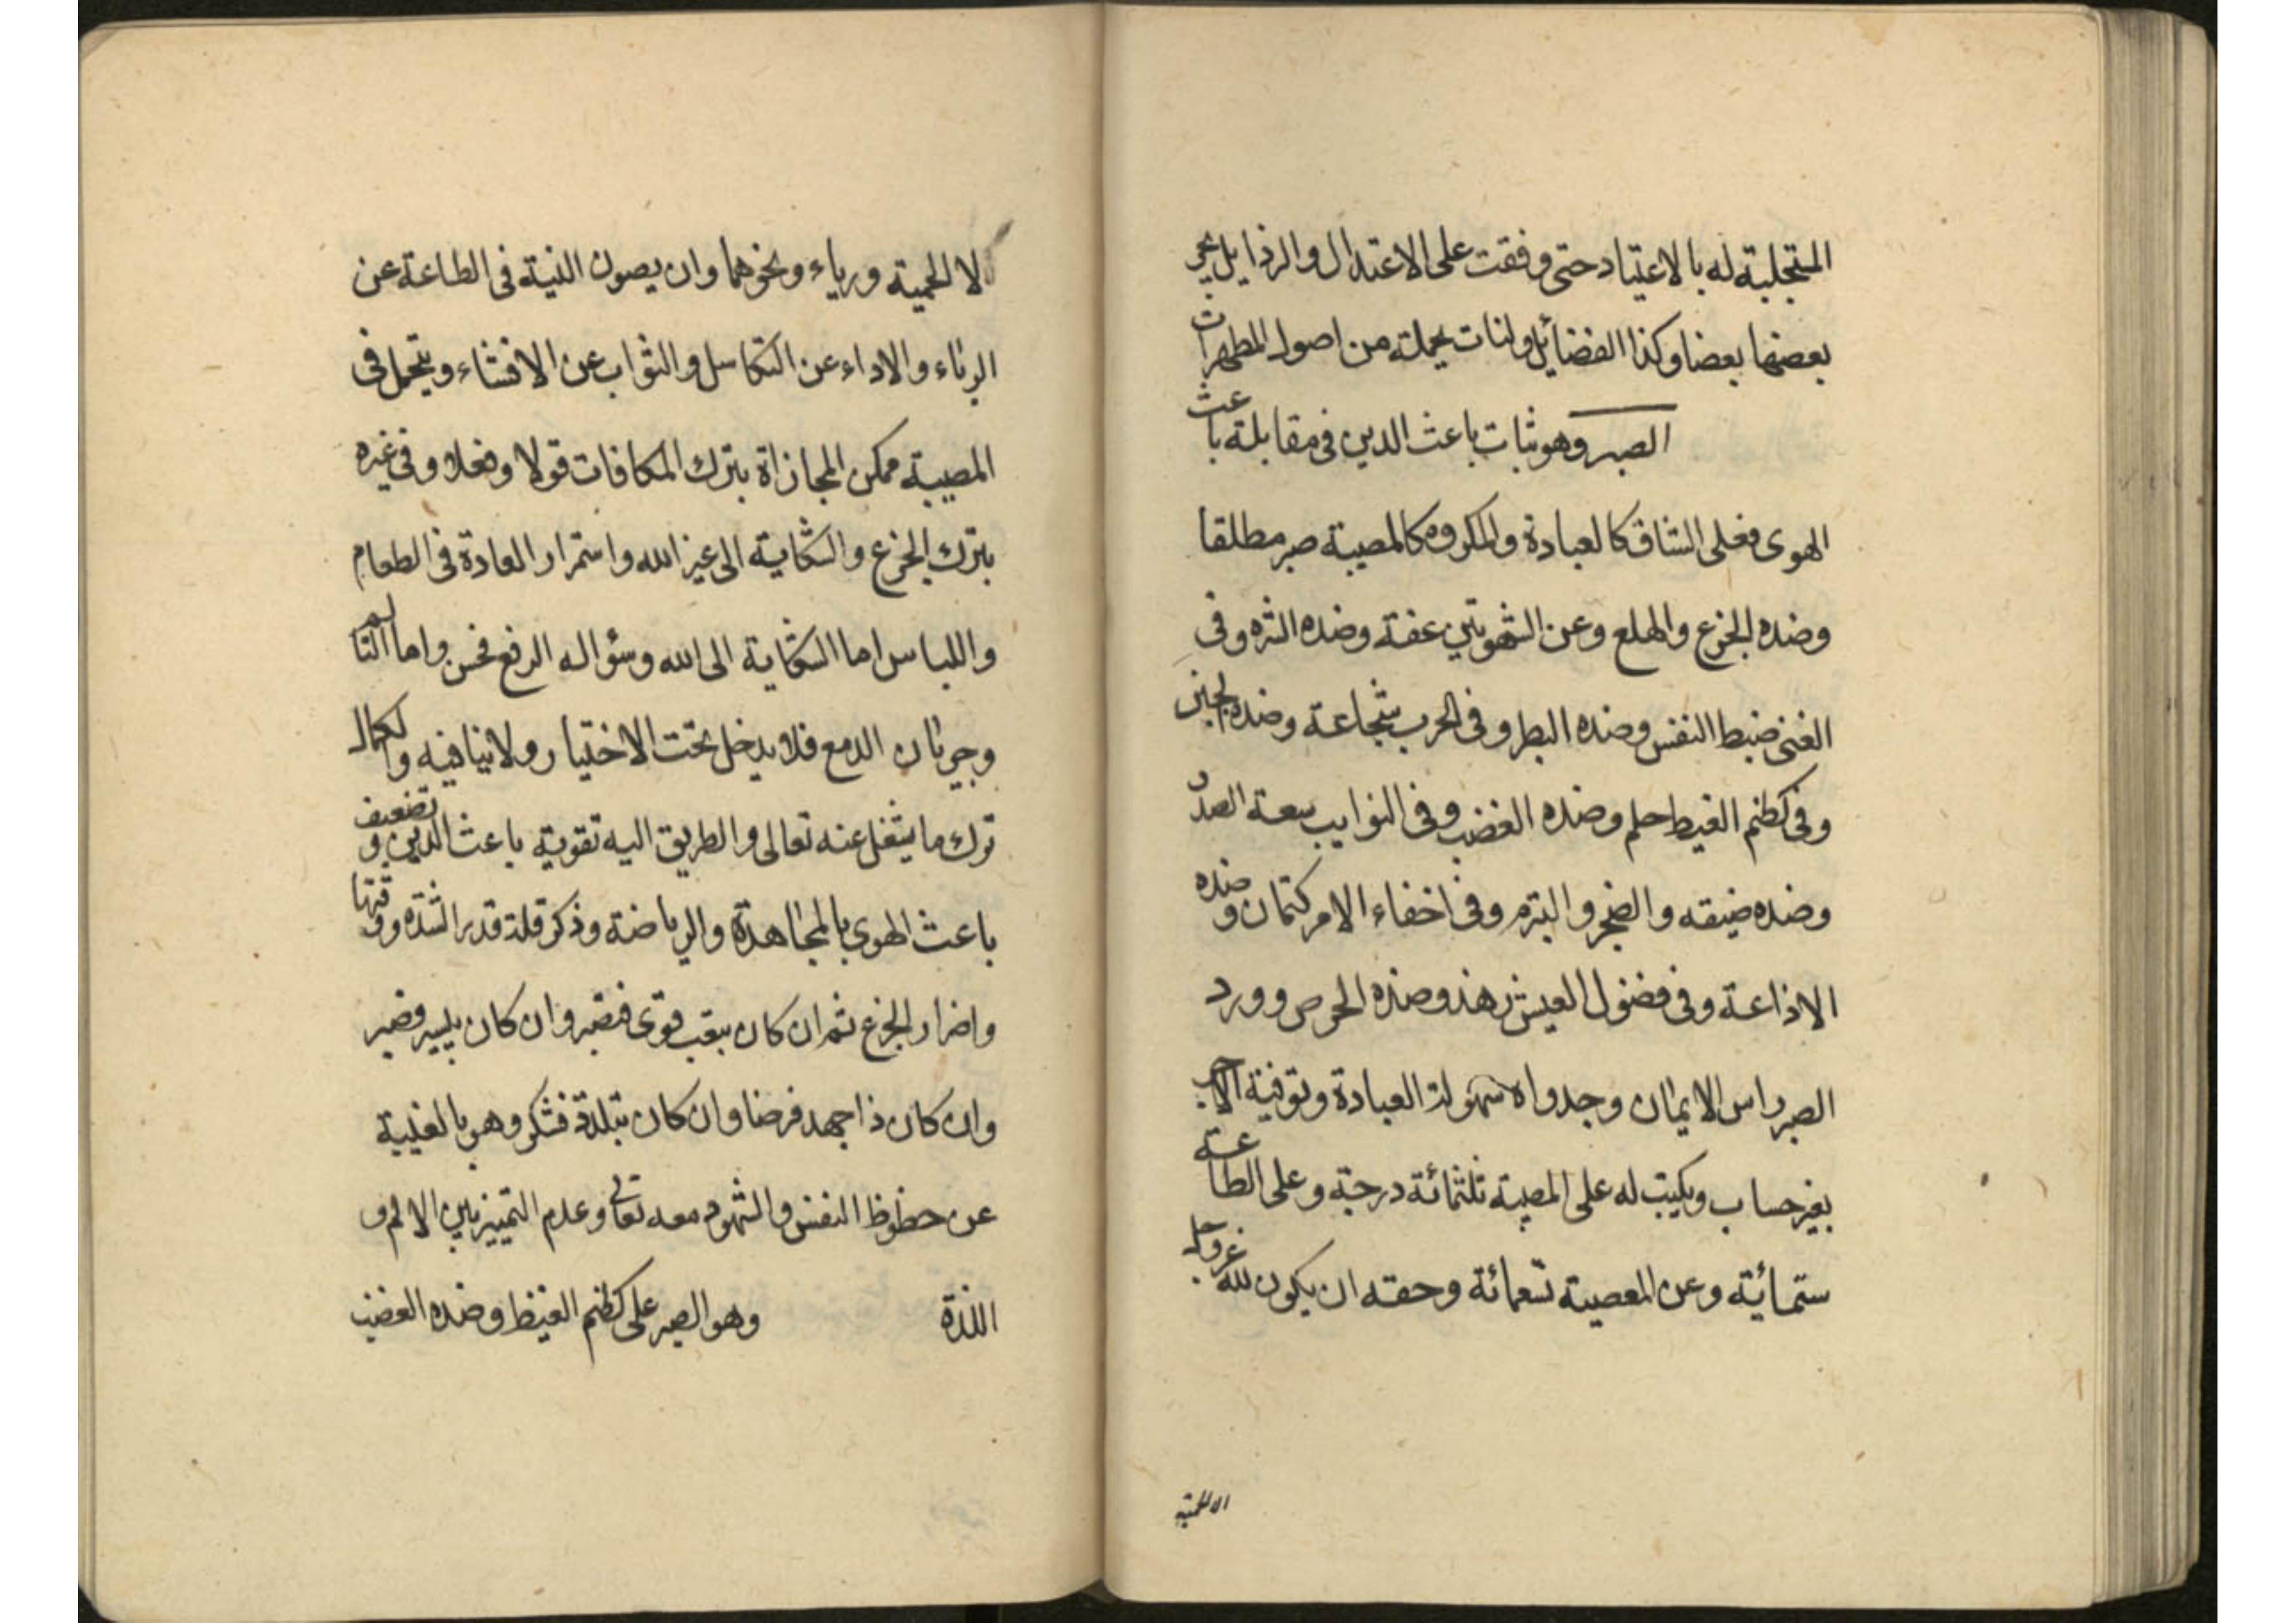 المتجلبة له بالاعتياد حتى وفقت على الاعتدال والرذايل يجر
بعضها بعضا وكذا الفضائل ولنات بجملة من اصول المطهرات
الصبر وهو ثبات باعث الدين فى مقابلة باعث
الهوى فعلى الشاق كالعبادة والمكروه كالمصيبة صبر مطلقا
وضده الجزع والهلع وعن الشهوتين عفة وضده الشره وفى
الغنى ضبط النفس وضده البطر وفى الحرب شجاعة وضده الجبن
وفى كظم الغيظ حلم وضده الغضب وفى النوايب سعة الصدر
وضده ضيقه والضجر والتبرم وفى اخفاء الامر كتمان وضده
الاذاعة وفى فضول العيش زهد وضده الحرص وورد
الصبر راس الايمان وجدواه سهولة العبادة وتوفية الاجر
بغير حساب ويكتب له على المصيبة ثلثمائة درجة وعلى الطاعة
ستمائة وعن المعصية تسعمائة وحقه ان يكون لله عز وجل
لا لحمية
لا لحمية ورياء ونحوهما وان يصون النية فى الطاعة عن
الرياء والاداء عن التكاسل والثواب عن الافشاء ويتحمل فى
المصيبة ممكن المجازاة بترك المكافات قولا وفعلا وفى غيره
بترك الجزع والشكاية الى غير الله واستمرار العادة فى الطعام
واللباس اما الشكاية الى الله وسؤاله الرفع فحسن واما التالم
وجريان الدمع فلا يدخل تحت الاختيار ولا ينافيه والكمال
ترك ما يشغل عنه تعالى والطريق اليه تقوية باعث الدين وتضعيف
باعث الهوى بالمجاهدة والرياضة وذكر قلة قدر الشدة ووقتها
واضرار الجزع ثم ان كان بتعب قوى فتصبر وان كان بيسير فصبر
وان كان ذا جهد فرضا وان كان بتلذة فشكر وهو بالغيبة
عن حظوظ النفس والشهود معه تعالى وعدم التمييز بين الالم و
اللذة وهو الصبر على كظم الغيظ وضده الغضب